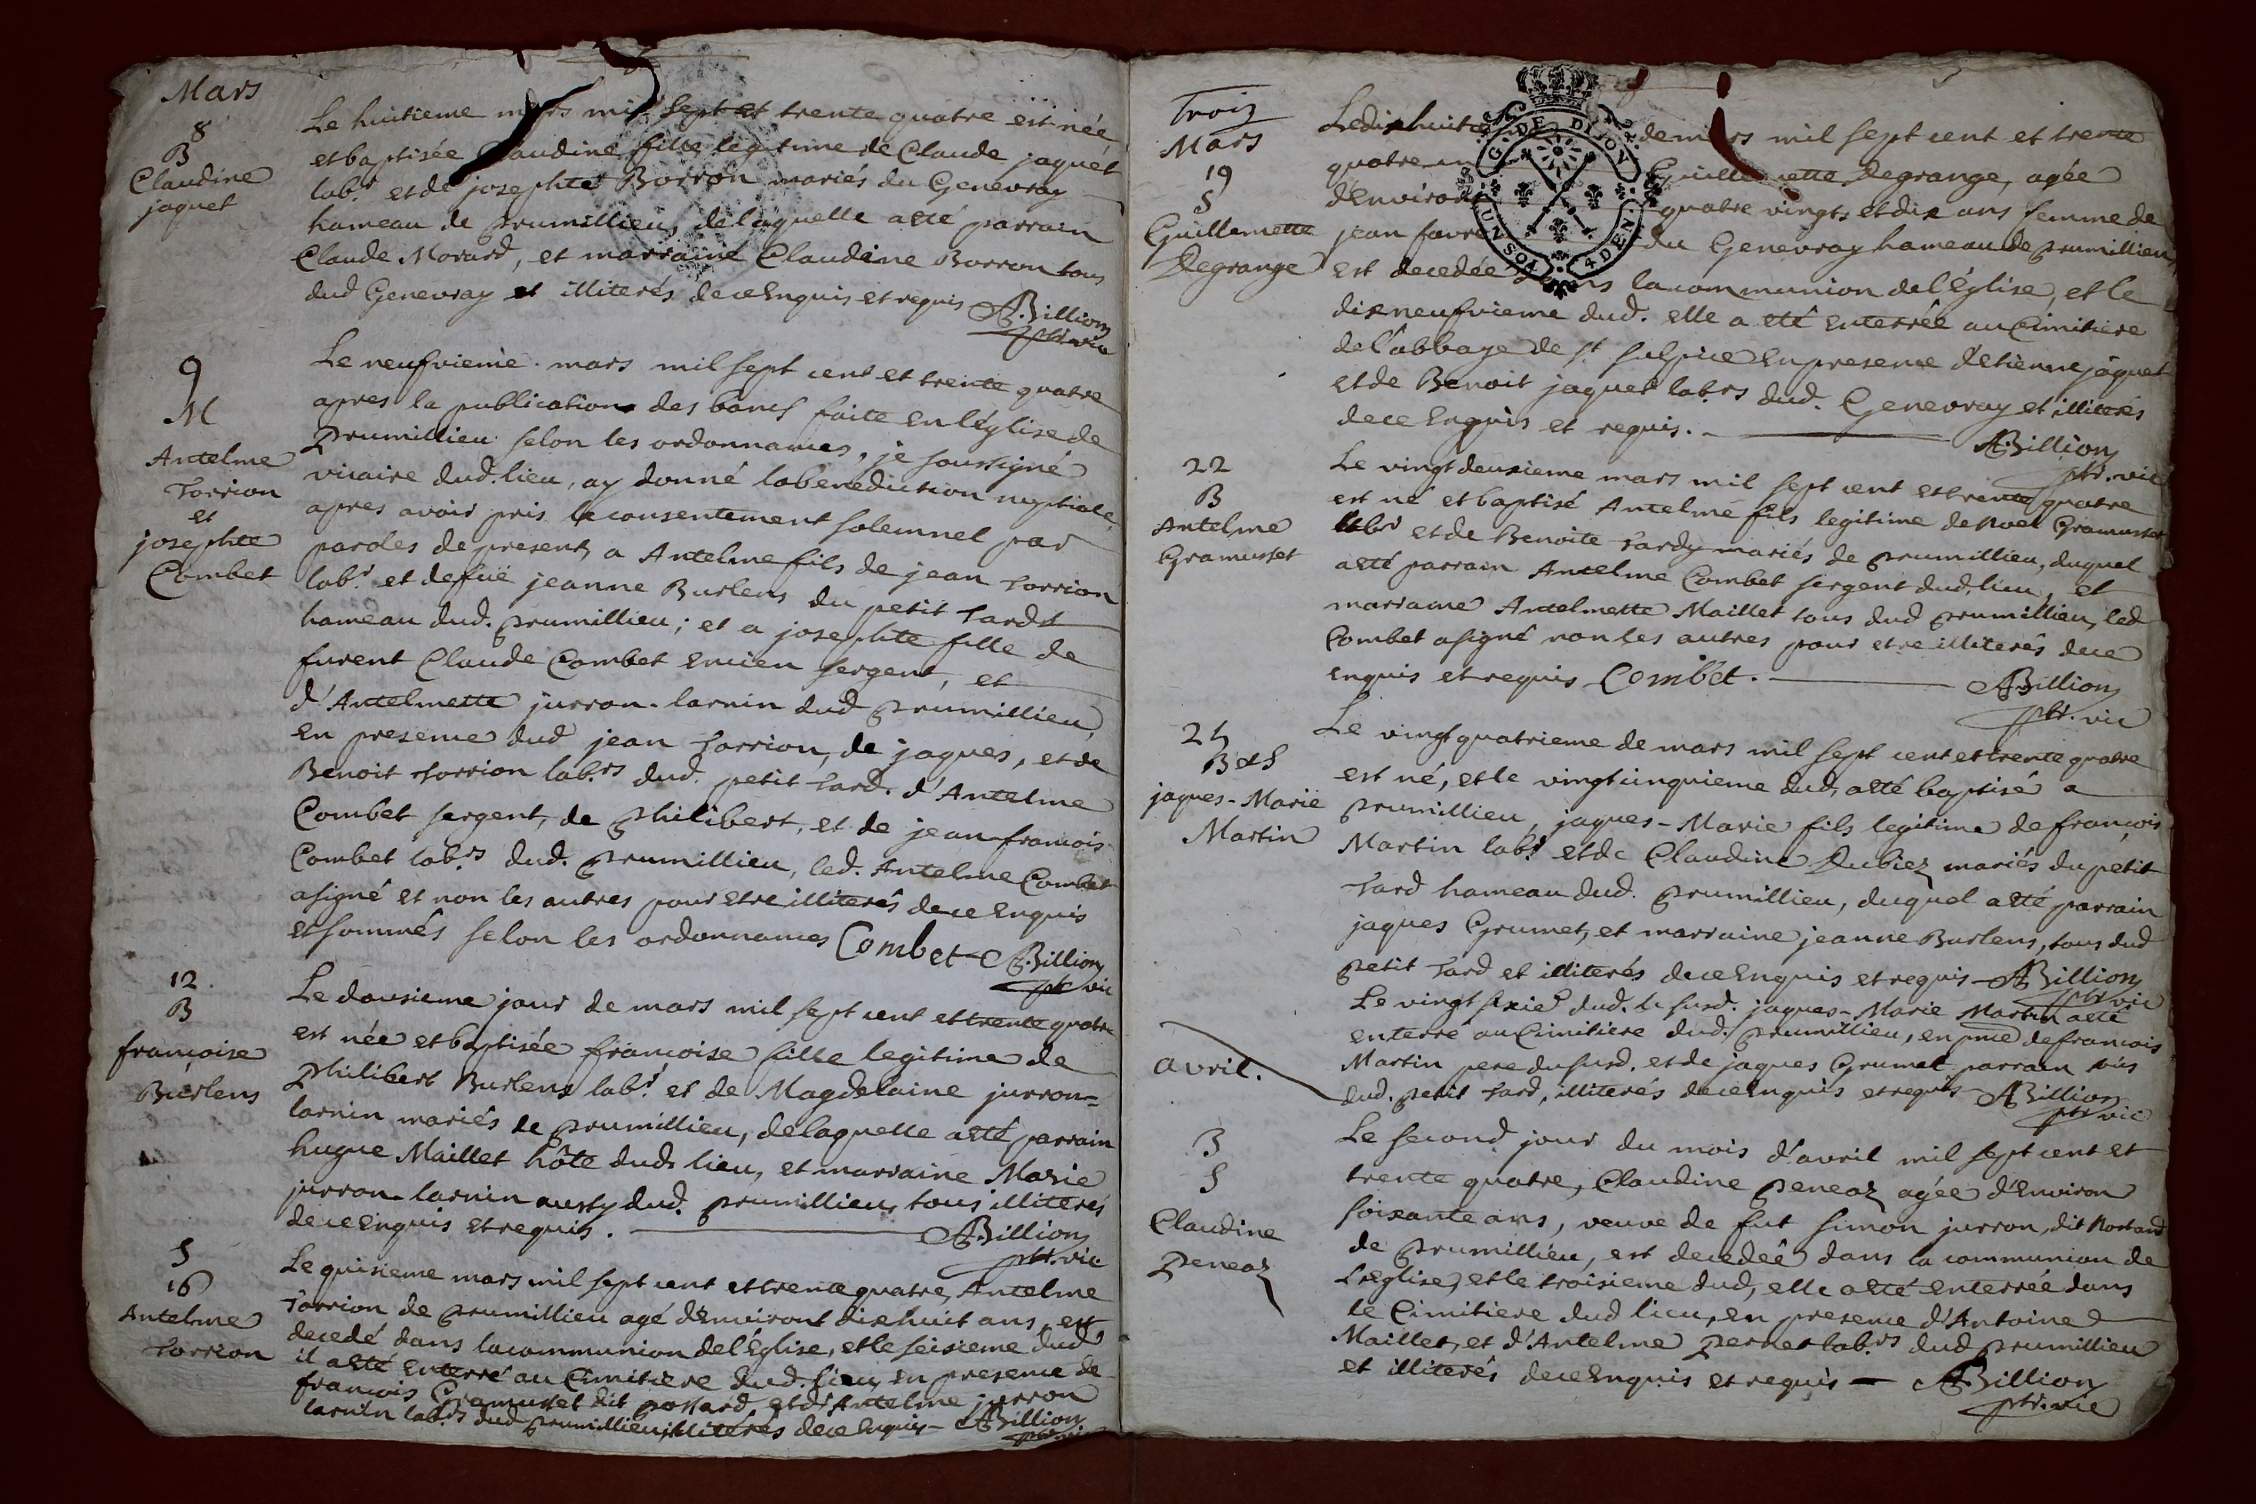 Mars
8
B
Claudine
jaquet
Le huitieme mars mil sept et trente quatre est née
et baptisée Claudine fille legitime de Claude jaquet
labr. et de josephte Borron mariés du Genevray
hameau de prumillieu, de laquelle a eté parrain
Claude Morard, et marraine Claudine Borron tous
dud Genevray et illiterés de ce Enquis et requis ABillion
ptr. vic
9
M
Antelme
Torrion
et
josephte
Combet
Le neufvieme mars mil sept cent et trente quatre
apres la publication des bancs faite en l'église de
prumillieu selon les ordonnances, je soussigné
vicaire dud. lieu, ay donné la benediction nuptiale,
apres avoir pris le consentement solemnel par
paroles de present, a Antelme fils de jean Torrion
labr. et de fuë jeanne Burlens du petit Tard
hameau dud. prumillieu; et a josephte fille de
furent Claude Combet encien sergent, et
d'Antelmette jurron-larnin dud prumillieu,
en presence dud jean Torrion, de jaques, et de
Benoit Torrion lab.rs dud. petit Tard. d'Antelme
Combet sergent, de Philibert, et de jean francois
Combet lab.rs dud. prumillieu, led. Antelme Combet
a signé et non les autres pour etre illiterés de ce Enquis
et sommés selon les ordonnances Combet ABillion
ptr vic
12
B
francoise
Burlens
Le dousieme jour de mars mil sept cent et trente quatre
est née et baptisée francoise fille legitime de
Philibert Burlens labr. et de Magdelaine jurron=
larnin mariés de prumillieu, de laquelle a eté parrain
hugue Maillet hôte dud. lieu, et marraine Marie
jurron-larnin aussy dud. prumillieu, tous illiterés
de ce Enquis et requis. ABillion
ptr. vic
S
16
Antelme
Torrion
Le quisieme mars mil sept cent et trente quatre, Antelme
Torrion de prumillieu agé d'Environt dixhuit ans, est
decedé dans la communion de l'Eglise, et le seisieme dud
il a eté enterré au Cimitiere dud. lieu, en presence de
francois Gramusset dit possard, et d'Antelme jurron
larnin lab.rs dud prumillieu, illiterés de ce Enquis - ABillion
ptr. vic
Trois
Mars
19
S
Guillemette
Degrange
G. DE DIJON
UN SOL 4 DEN.
Le dixhuitie de mars mil sept cent et trente
quatre Guillemette Degrange, agée
d'Environt quatre vingts et dix ans femme de
jean favre du Genevray hameau de prumillieu,
est decedée dans la communion de l'Église, et le
dixneufvieme dud. elle a eté enterrée au Cimitiere
de l'abbaye de st sulpice en presence d'Etienne jaquet
et de Benoit jaquet lab.rs dud. Genevray et illiterés
de ce Enquis et requis. - ABillion
ptr. vic
22
B
Antelme
Gramusset
Le vingt deuxieme mars mil sept cent et trente quatre
est né et baptisé Antelme fils legitime de Noel Gramusset
labr et de Benoite Tardy mariés de prumillieu, duquel
a eté parrain Antelme Combet sergent dud. lieu, et
marraine Antelmette Maillet tous dud prumillieu, led
Combet a signé non les autres pour etre illiterés de ce
enquis et requis Combet. ABillion
ptr. vic
24
B et S
jaques-Marie
Martin
Le vingt quatrieme de mars mil sept cent et trente quatre
est né, et le vingt cinquieme dud, a eté baptisé a
prumillieu, jaques-Marie fils legitime de françois
Martin labr. et de Claudine Dubiez mariés du petit
Tard hameau dud. prumillieu, duquel a eté parrain
jaques Grumet, et marraine jeanne Burlens, tous dud
petit Tard et illiterés de ce Enquis et requis - ABillion
ptr vic
Le vingt sixie dud. le susd. jaques-Marie Martin a eté
enterré au Cimitiere dud. prumillieu, en pnce de francois
Martin pere du susd. et de jaques Grumet parrain
dud. petit Tard, illiterés de ce Enquis et requis ABillion
ptr vic
avril.
3
S
Claudine
Peneaz
Le second jour du mois d'avril mil sept cent et
trente quatre, Claudine peneaz agée d'Environ
soixante ans, veuve de fut simon jurron, dit
de prumillieu, est decedeé dans la communion de
l'Eglise, et le troisieme dud, elle a eté enterrée dans
le Cimitiere dud lieu, en presence d'Antoine
Maillet, et d'Antelme Pernet lab.rs dud prumillieu
et illiterés de ce Enquis et requis - ABillion
ptr. vic